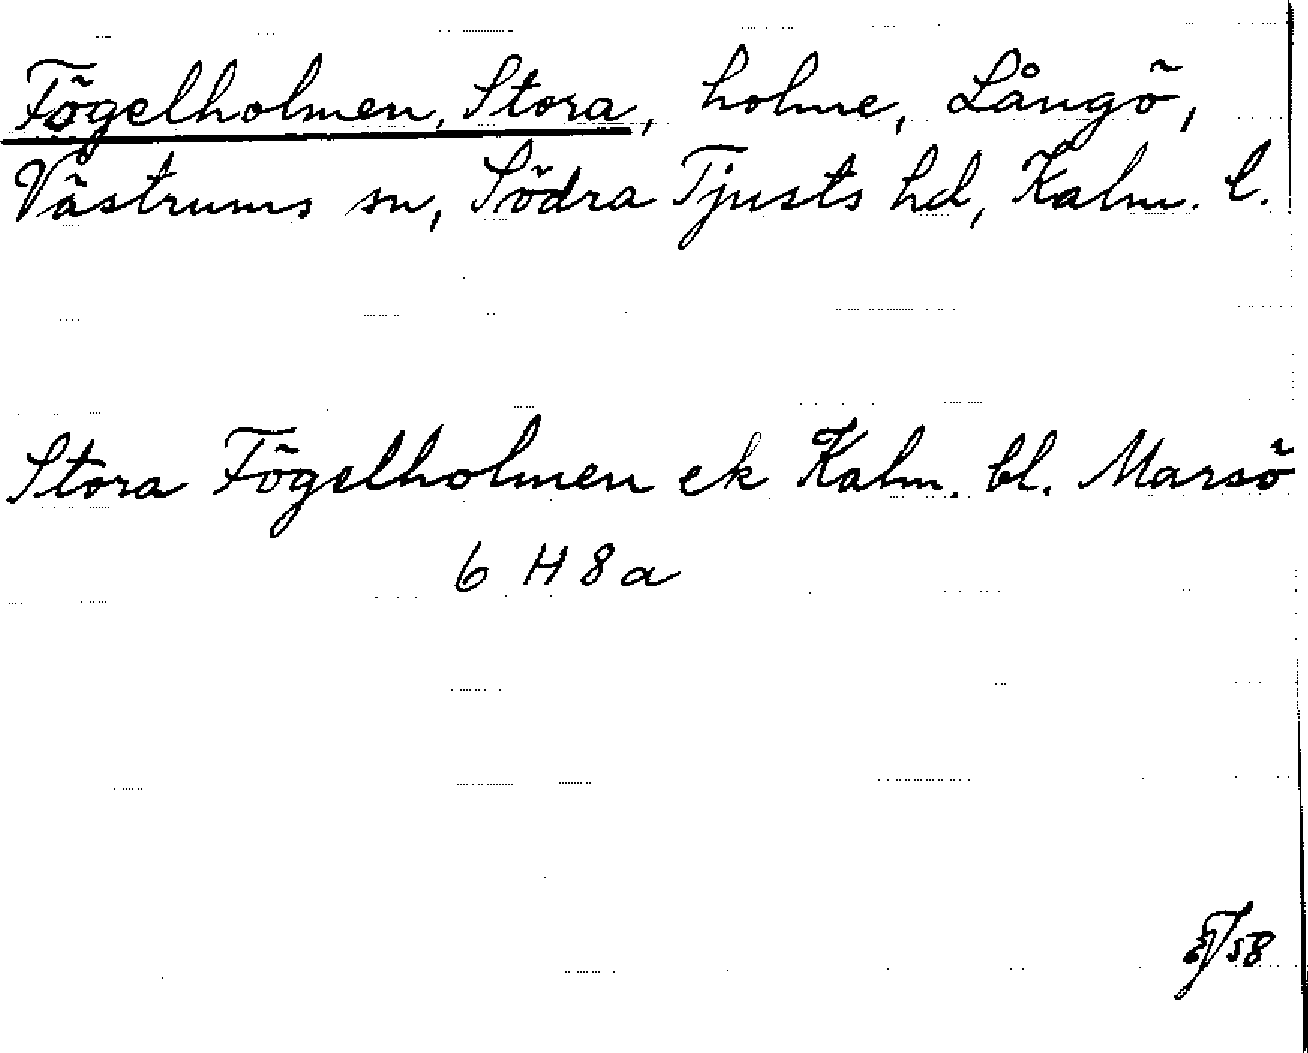 Fögelholmen, Stora, holme, Långö,
Västrums sn, Södra Tjusts hd, Kalm. l.
Stora Fögelholmen ek Kalm. bl. Marsö
6 H 8 a